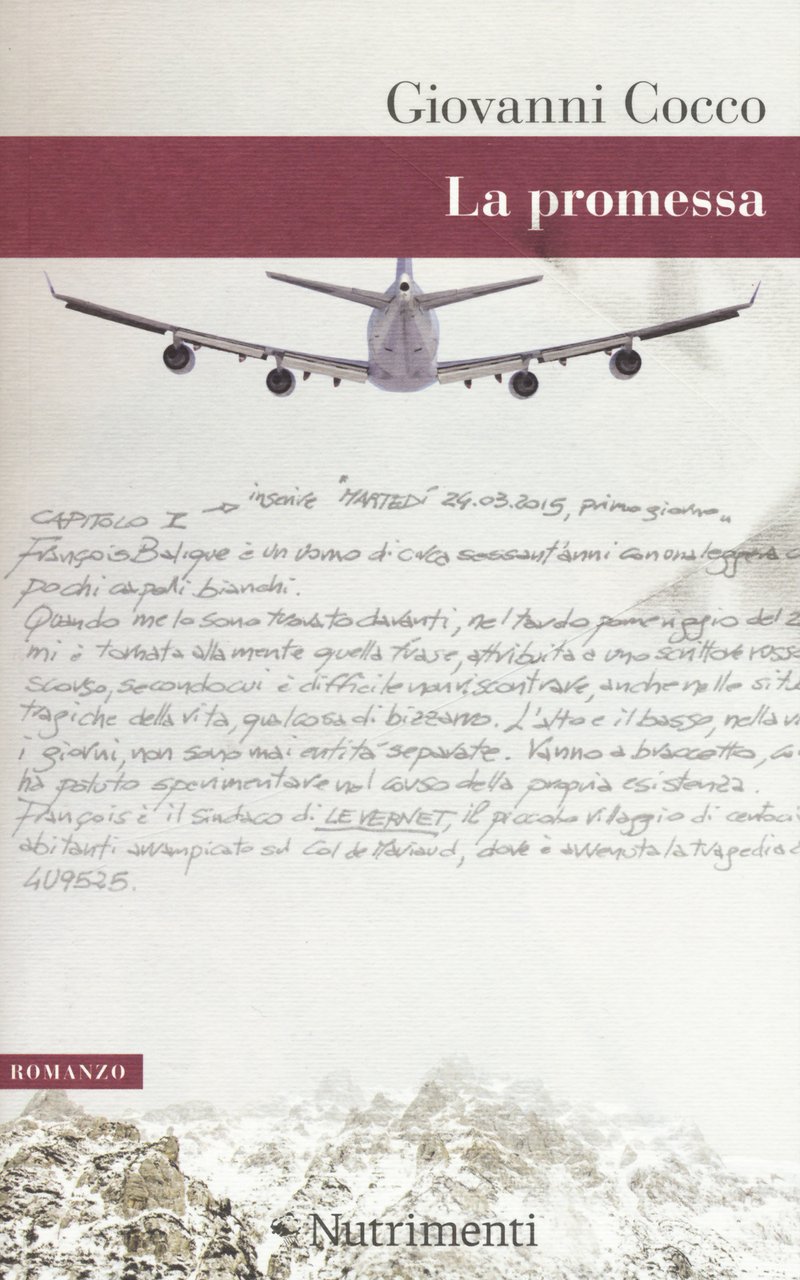 Giovanni Cocco
La promessa
CAPITOLO I → inserire "MARTEDÍ 24.03.2015, primo giorno"
François Balique è un uomo di circa sessant'anni con una leggera
pochi capelli bianchi.
Quando me lo sono trovato davanti, nel tardo pomeriggio del 2
mi è tornata alla mente quella frase, attribuita a uno scrittore russo
scorso, secondo cui è difficile non riscontrare, anche nelle
tragiche della vita, qualcosa di bizzarro. L'alto e il basso, nella
i giorni, non sono mai entità separate. Vanno a braccetto, co
ha potuto sperimentare nel corso della propria esistenza.
François è il sindaco di LE VERNET, il piccolo villaggio di
abitanti arrampicato sul Col de Mariaud, dove è avvenuta la tragedia
4U9525.
ROMANZO
Nutrimenti